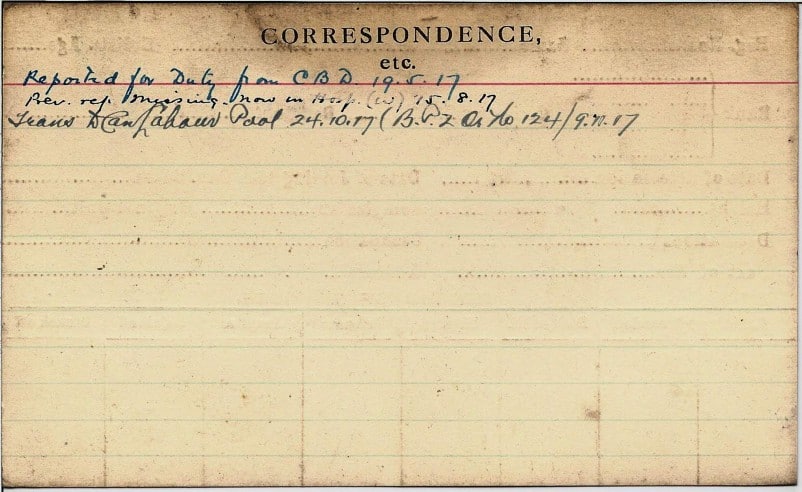 CORRESPONDENCE,
etc.
Reported for Duty from C B D 19.5.17
Prev. rep. missing. Now in Hosp. (W) 15.8.17
Trans Labour Pool 24.10.17 (B. P. 2 O. No 124/9.11.17